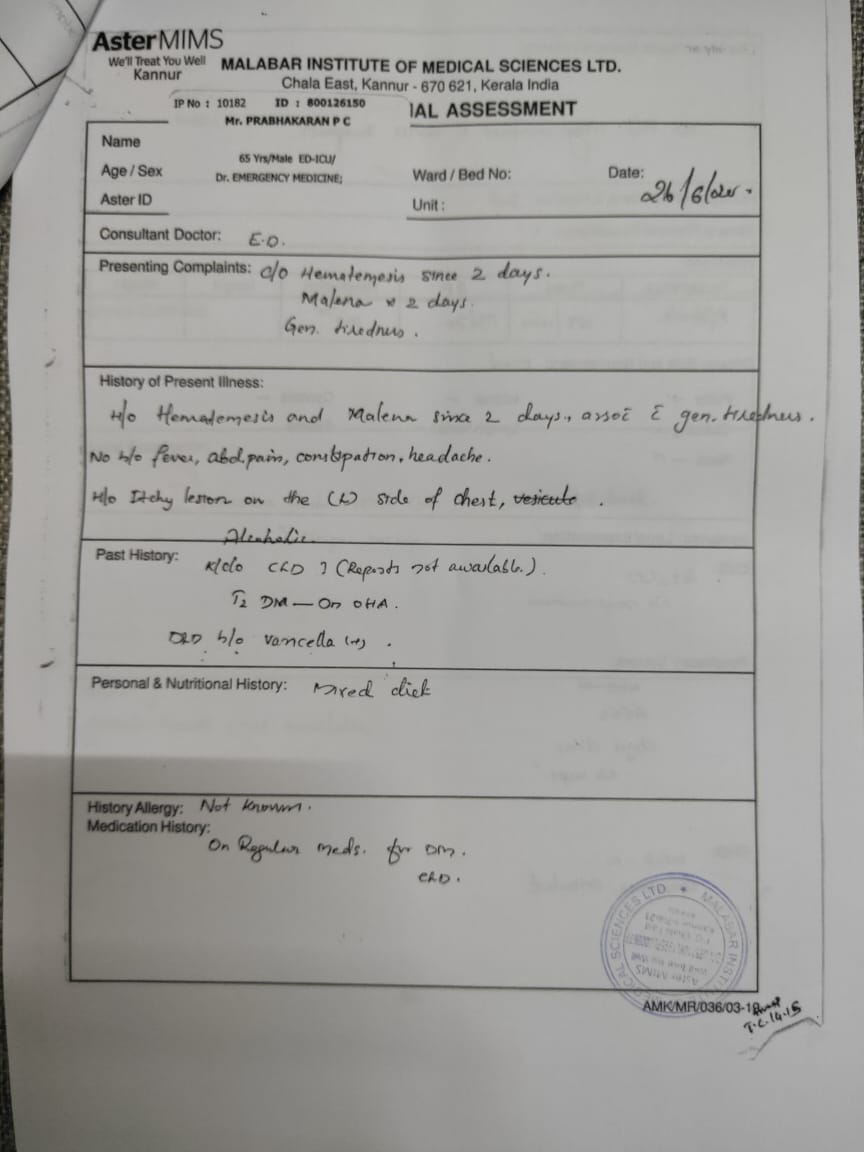 AsterMIMS
We'll Treat You Well
Kannur
MALABAR INSTITUTE OF MEDICAL SCIENCES LTD.
Chala East, Kannur - 670 621, Kerala India
IP No : 10182 ID : 800126150
Mr. PRABHAKARAN P C
IAL ASSESSMENT
Name
Age / Sex
65 Yrs/Male ED-ICU/
Dr. EMERGENCY MEDICINE;
Aster ID
Ward / Bed No:
Unit :
Date:
26/6/
Consultant Doctor: E.D.
Presenting Complaints: c/o Hematemesis since 2 days.
Malena x 2 days.
Gen. tiredness.
History of Present Illness:
H/o Hematemesis and Malena since 2 days, assoc c̄ gen. tiredness.
No h/o fever, abd. pain, constipation, headache.
H/o Itchy lesion on the (L) side of chest, .
Alcoholic
Past History: K/c/o CLD ? (Reports not available.).
T2 DM — On OHA.
h/o varicella (+) .
Personal & Nutritional History: Mixed diet
History Allergy: Not known.
Medication History:
On Regular meds. for DM.
CLD.
MALABAR INSTIT
ICAL SCIENCES LTD.
Aster MIMS
AMK/MR/036/03-1
T.C.14.15